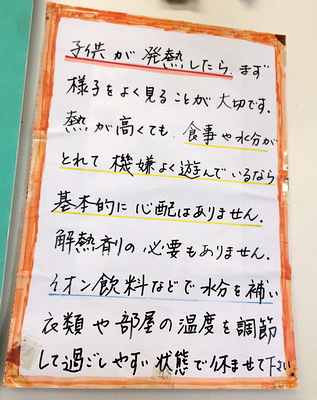 子供が発熱したら、まず
様子をよく見ることが大切です。
熱が高くても、食事や水分が
とれて機嫌よく遊んでいるなら、
基本的に心配はありません。
解熱剤の必要もありません。
イオン飲料などで水分を補い
衣類や部屋の温度を調節
して過ごしやすい状態で休ませて下さい